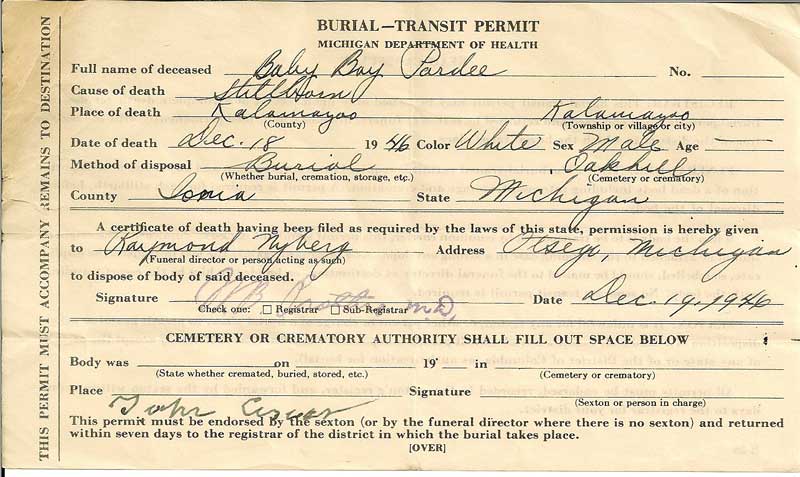 BURIAL—TRANSIT PERMIT
MICHIGAN DEPARTMENT OF HEALTH
Full name of deceased Baby Boy Pardee No.
Cause of death Stillborn
Place of death Kalamazoo Kalamazoo
(County) (Township or village or city)
Date of death Dec. 18 1946 Color White Sex Male Age —
Method of disposal Burial Oakhill
(Whether burial, cremation, storage, etc.) (Cemetery or crematory)
County Ionia State Michigan
A certificate of death having been filed as required by the laws of this state, permission is hereby given
to Raymond Nyberg Address Otsego, Michigan
(Funeral director or person acting as such)
to dispose of body of said deceased.
Signature M.D. Date Dec. 19, 1946
Check one: Registrar Sub-Registrar
CEMETERY OR CREMATORY AUTHORITY SHALL FILL OUT SPACE BELOW
Body was on 19 in
(State whether cremated, buried, stored, etc.) (Cemetery or crematory)
Place Signature
(Sexton or person in charge)
John
This permit must be endorsed by the sexton (or by the funeral director where there is no sexton) and returned
within seven days to the registrar of the district in which the burial takes place.
[OVER]
THIS PERMIT MUST ACCOMPANY REMAINS TO DESTINATION